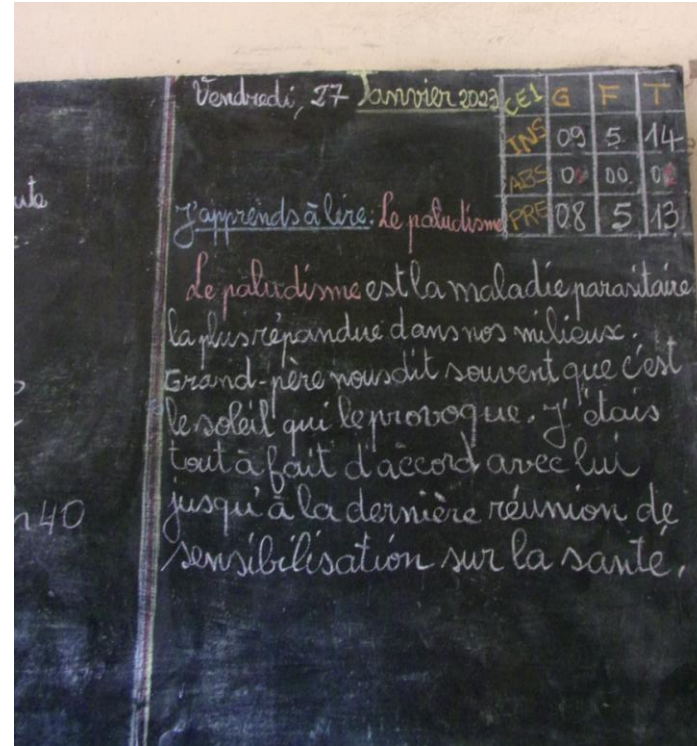 Vendredi, 27 Janvier 2023
CE1 G F T
INS 09 5 14
ABS 00
PRE 08 5 13
J'apprends à lire: Le paludisme
Le paludisme est la maladie parasitaire
la plus répandue dans nos milieux.
Grand-père nous dit souvent que c'est
le soleil qui le provoque. J'étais
tout à fait d'accord avec lui
jusqu'à la dernière réunion de
sensibilisation sur la santé.
40